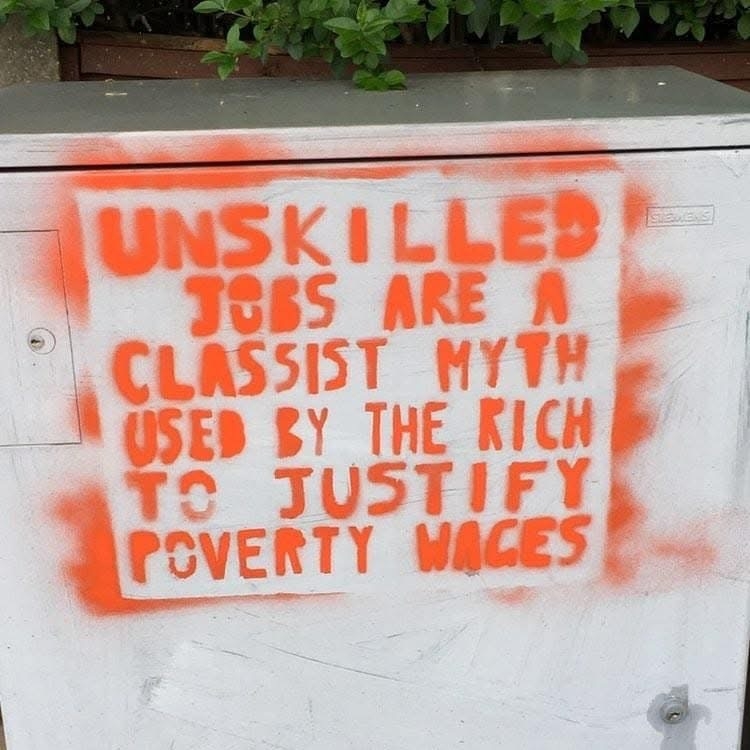 UNSKILLED
JOBS ARE A
CLASSIST MYTH
USED BY THE RICH
TO JUSTIFY
POVERTY WAGES
SIEMENS